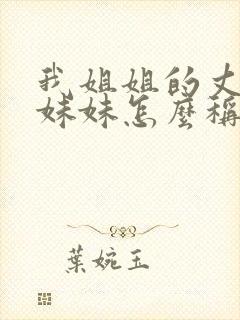 我姐姐的丈
妹妹怎麼稱
葉婉玉